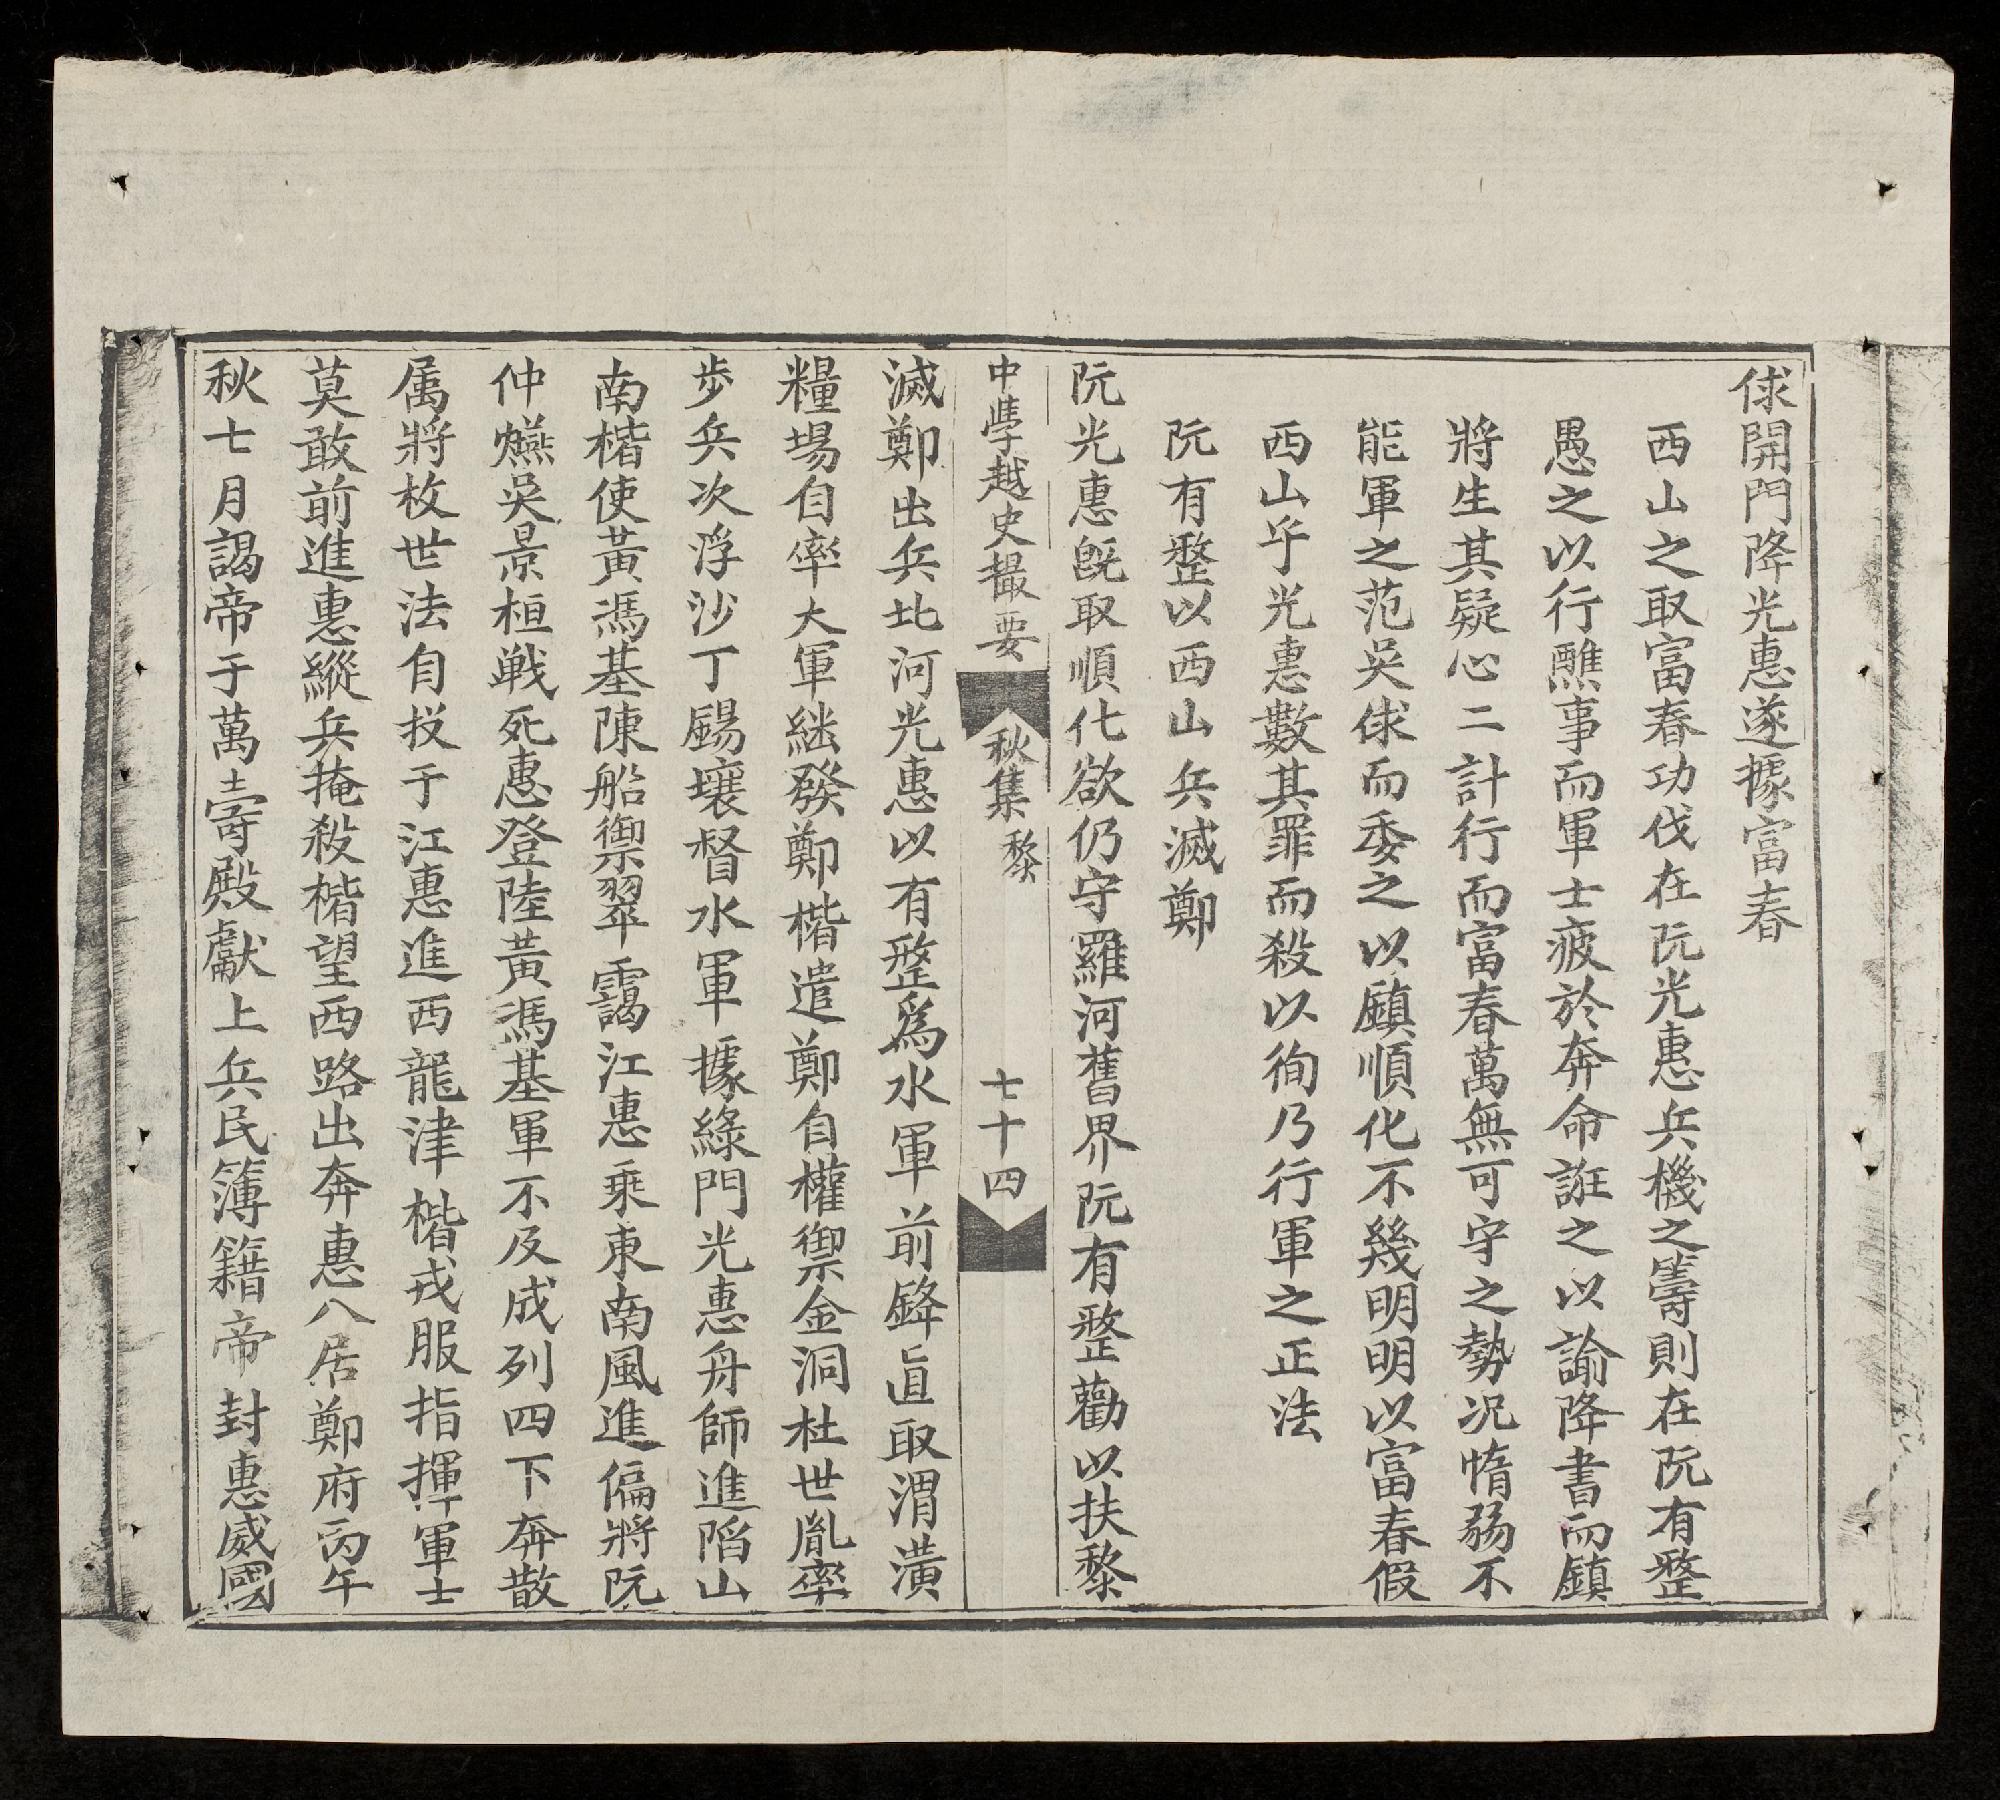 俅開門降光惠遂據富春
西山之取富春功伐在阮光惠兵機之籌則在阮有整
愚之以行醮事而軍士疲於奔命誑之以諭降書而鎮
將生其疑心二計行而富春萬無可守之勢况惰弱不
能軍之范吴俅而委之以鎮順化不幾明明以富春假
西山乎光惠數其罪而殺以徇乃行軍之正法
阮有整以西山兵滅鄭
阮光惠旣取順化欲仍守羅河舊界阮有整勸以扶黎
中學越史撮要 秋集 黎 七十四
滅鄭出兵北河光惠以有整爲水軍前鋒直取渭潢
糧場自率大軍継發鄭楷遣鄭自權禦金洞杜世胤率
步兵次浮沙丁錫壤督水軍據綠門光惠舟師進陷山
南楷使黃馮基陳船禦翠靄江惠乘東南風進偏將阮
仲𤒹吳景桓戦死惠登陸黃馮基軍不及成列四下奔散
属將枚世法自投于江惠進西龍津楷戎服指揮軍士
莫敢前進惠縱兵掩殺楷望西路出奔惠入居鄭府丙午
秋七月謁帝于萬壽殿獻上兵民簿籍帝封惠威國